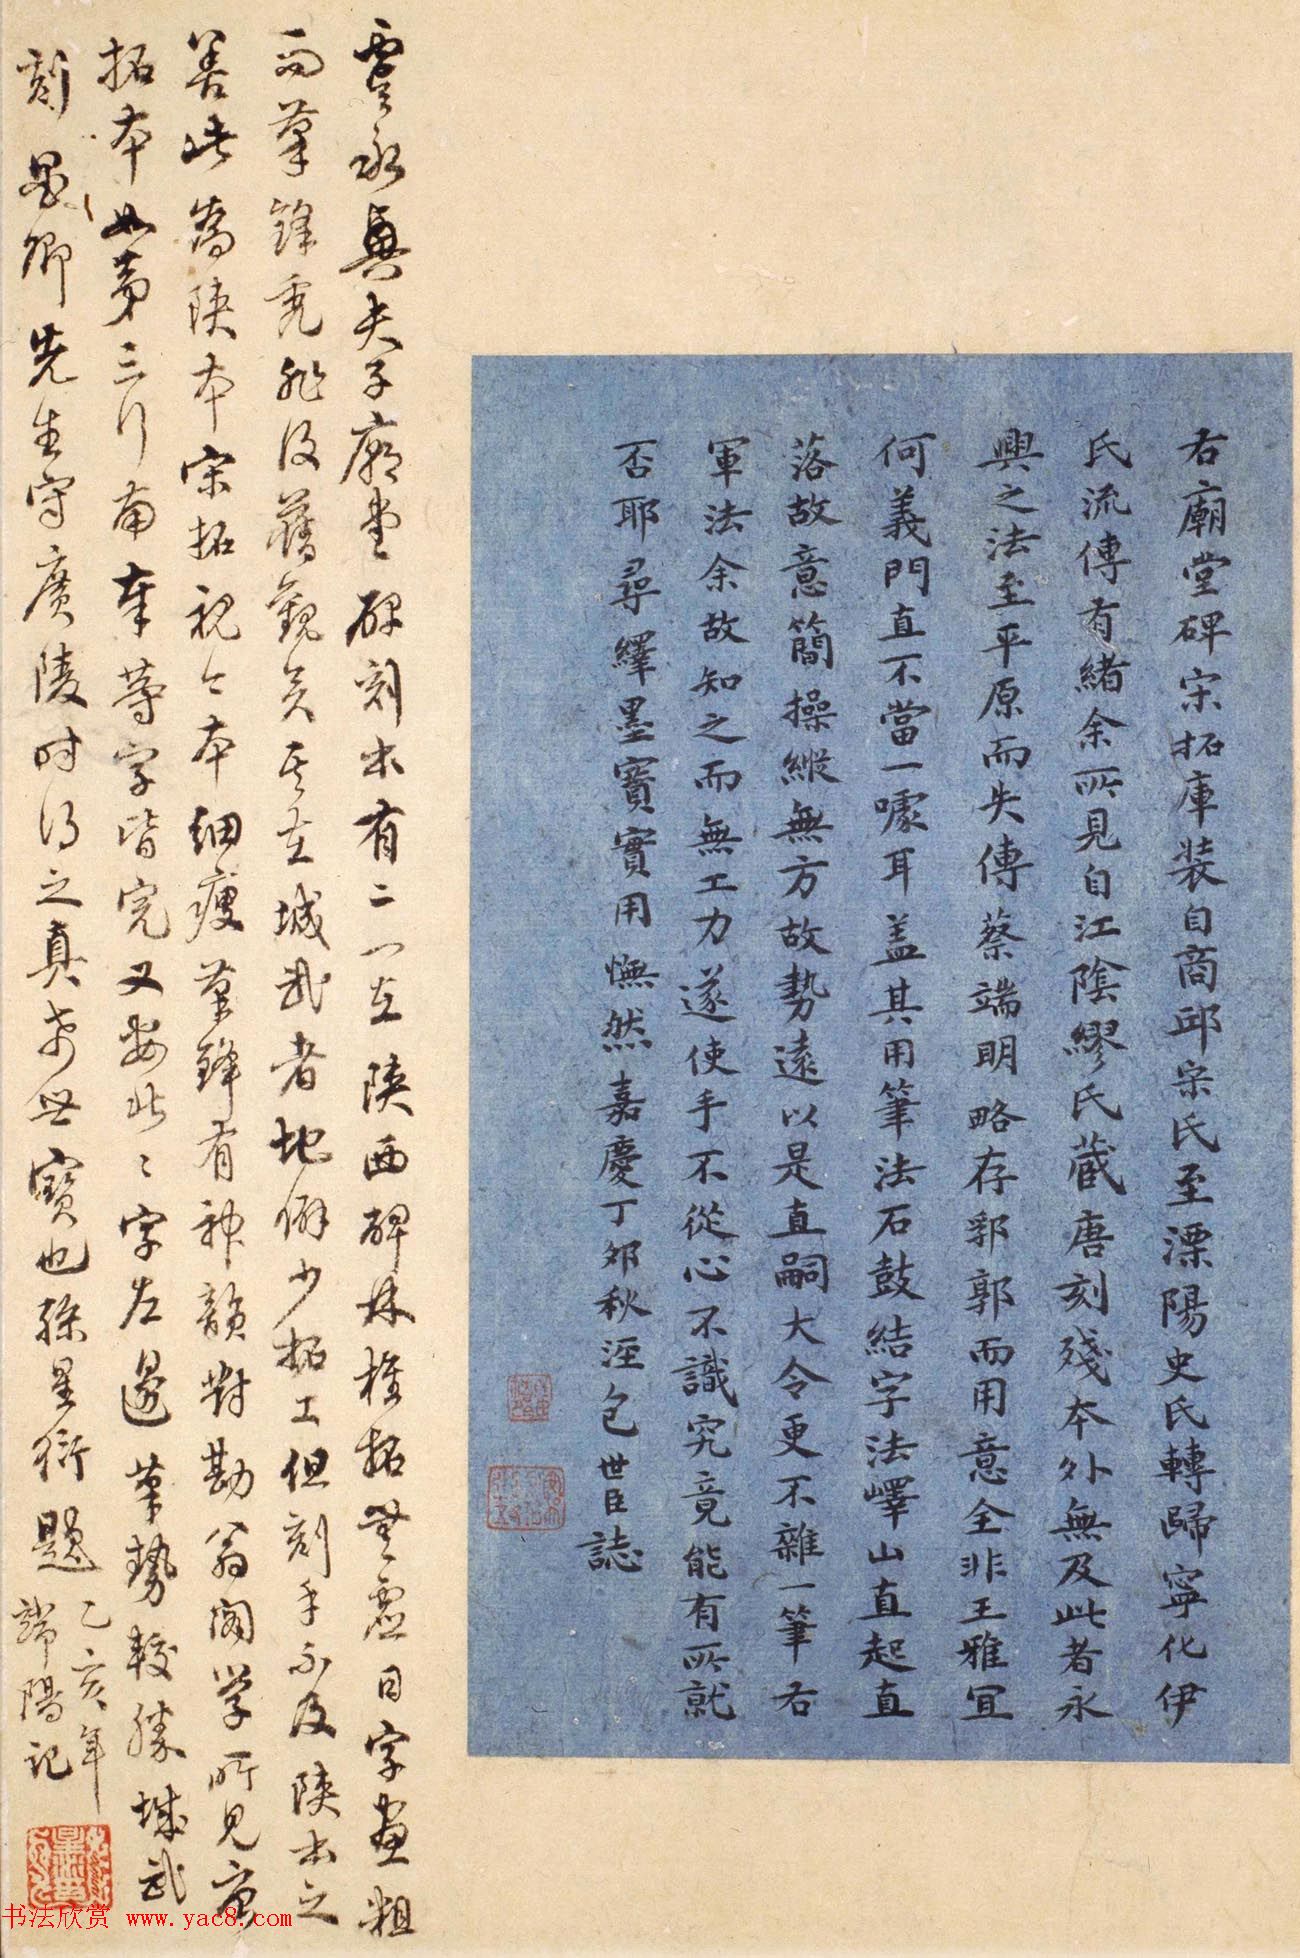 右廟堂碑宋拓庫裝自商邱宋氏至溧陽史氏轉歸寧化伊
氏流傳有緒余所見自江陰繆氏藏唐刻殘本外無及此者永
興之法至平原而失傳蔡端明略存郛郭而用意全非王雅宜
何義門直不當一噱耳蓋其用筆法石鼓結字法嶧山直起直
落故意簡操縱無方故勢遠以是直嗣大令更不雜一筆右
軍法余故知之而無工力遂使手不從心不識究竟能有所就
否耶尋繹墨寶實用憮然嘉慶丁卯秋涇包世臣誌
虞永興夫子廟堂碑刻本有二一在陝西碑林椎拓無虛日字畫粗
而筆鋒禿非復舊觀矣其在城武者地僻少拓工但刻手不及陝本之
善此為陝本宋拓視今本細瘦筆鋒有神韻對勘翁閣學所見宋
拓本如第三行南奉等字皆完又此字左邊筆勢較勝城武
刻墨卿先生守廣陵時得之真希世寶也孫星衍題乙亥年
端陽記
书法欣赏 www.yac8.com